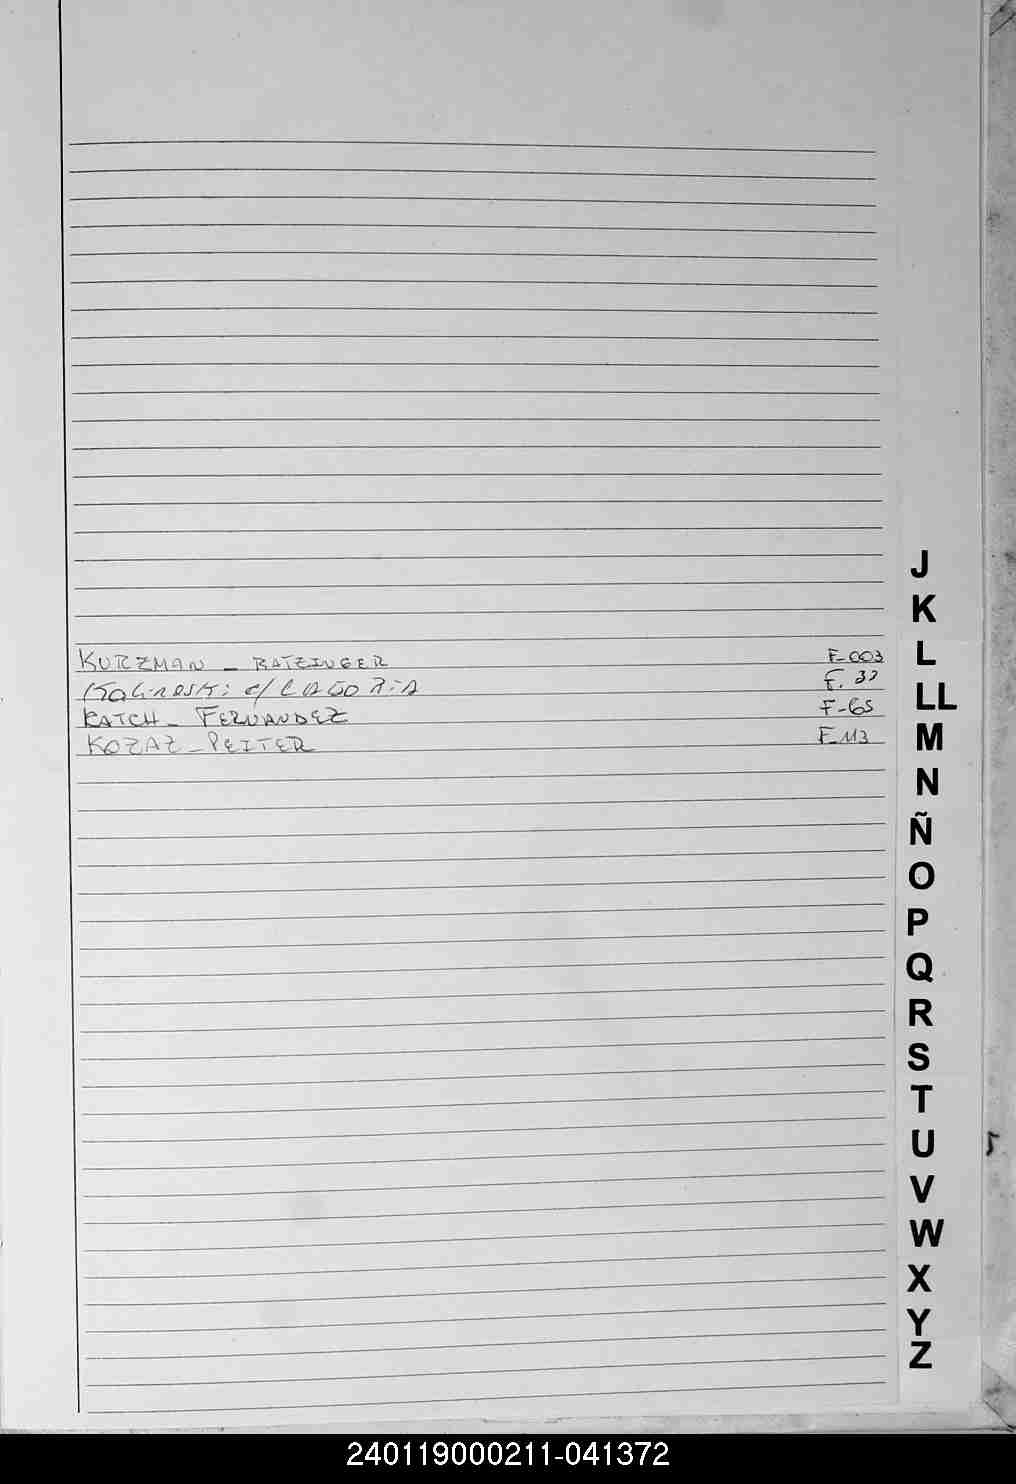 KURZMAN - RATZINGER F-003
c/ LAGORIA F. 37
KATCH - FERNANDEZ F-65
KOZAZ - PEITER F-113
J
K
L
LL
M
N
Ñ
O
P
Q
R
S
T
U
V
W
X
Y
Z
240119000211-041372